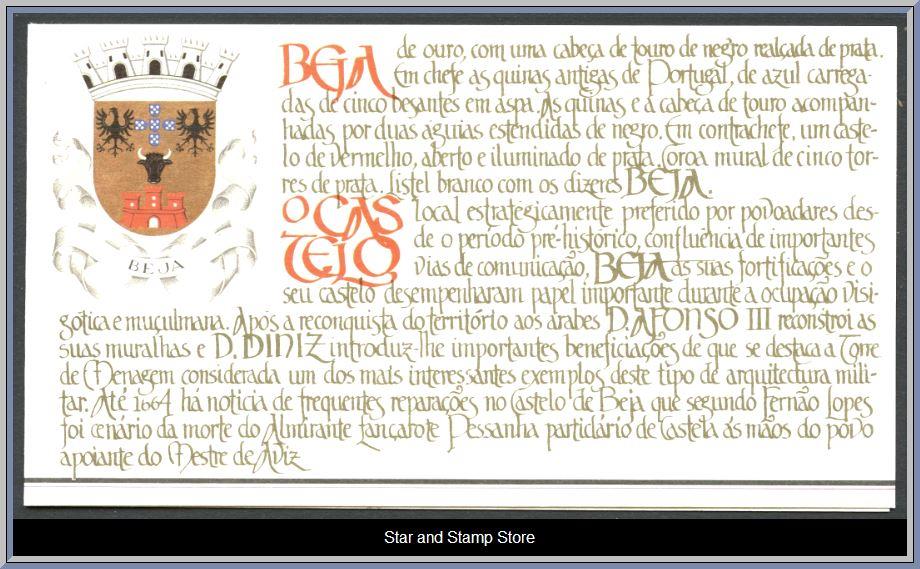 BEJA de ouro, com uma cabeça de touro de negro realçada de prata.
Em chefe as quinas antigas de Portugal, de azul carrega-
das de cinco besantes em aspa. As quinas e a cabeça de touro acompan-
hadas por duas águias estendidas de negro. Em contrachefe, um caste-
lo de vermelho, aberto e iluminado de prata. Coroa mural de cinco tor-
res de prata. Listel branco com os dizeres BEJA.
BEJA
O CAS
TELO
Local estrategicamente preferido por povoadores des-
de o período pré-histórico, confluencia de importantes
vias de comunicação, BEJA as suas fortificações e o
seu castelo desempenharam papel importante durante a ocupação visi-
gótica e muçulmana. Após a reconquista do território aos árabes D. AFONSO III reconstroi as
suas muralhas e D. DINIZ introduz-lhe importantes beneficiações de que se destaca a Torre
de Menagem considerada um dos mais interessantes exemplos deste tipo de arquitectura mili-
tar. Até 1664 há noticia de frequentes reparações no Castelo de Beja que segundo Fernão Lopes
foi cenário da morte do Almirante Lançarote Pessanha particlário de Castela ás mãos do povo
apoiante do Mestre de Aviz
Star and Stamp Store